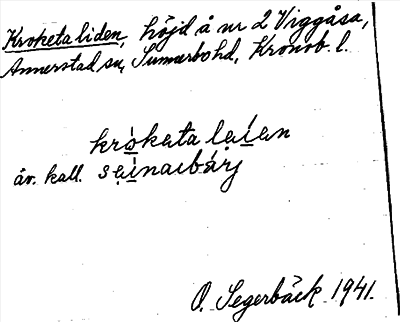 Kroketa liden, höjd å nr 2 Viggåsa,
Annerstad sn, Sunnerbo hd, Kronob. l.
krókata laian
äv. kall. sainaibárj
O. Segerbäck 1941.